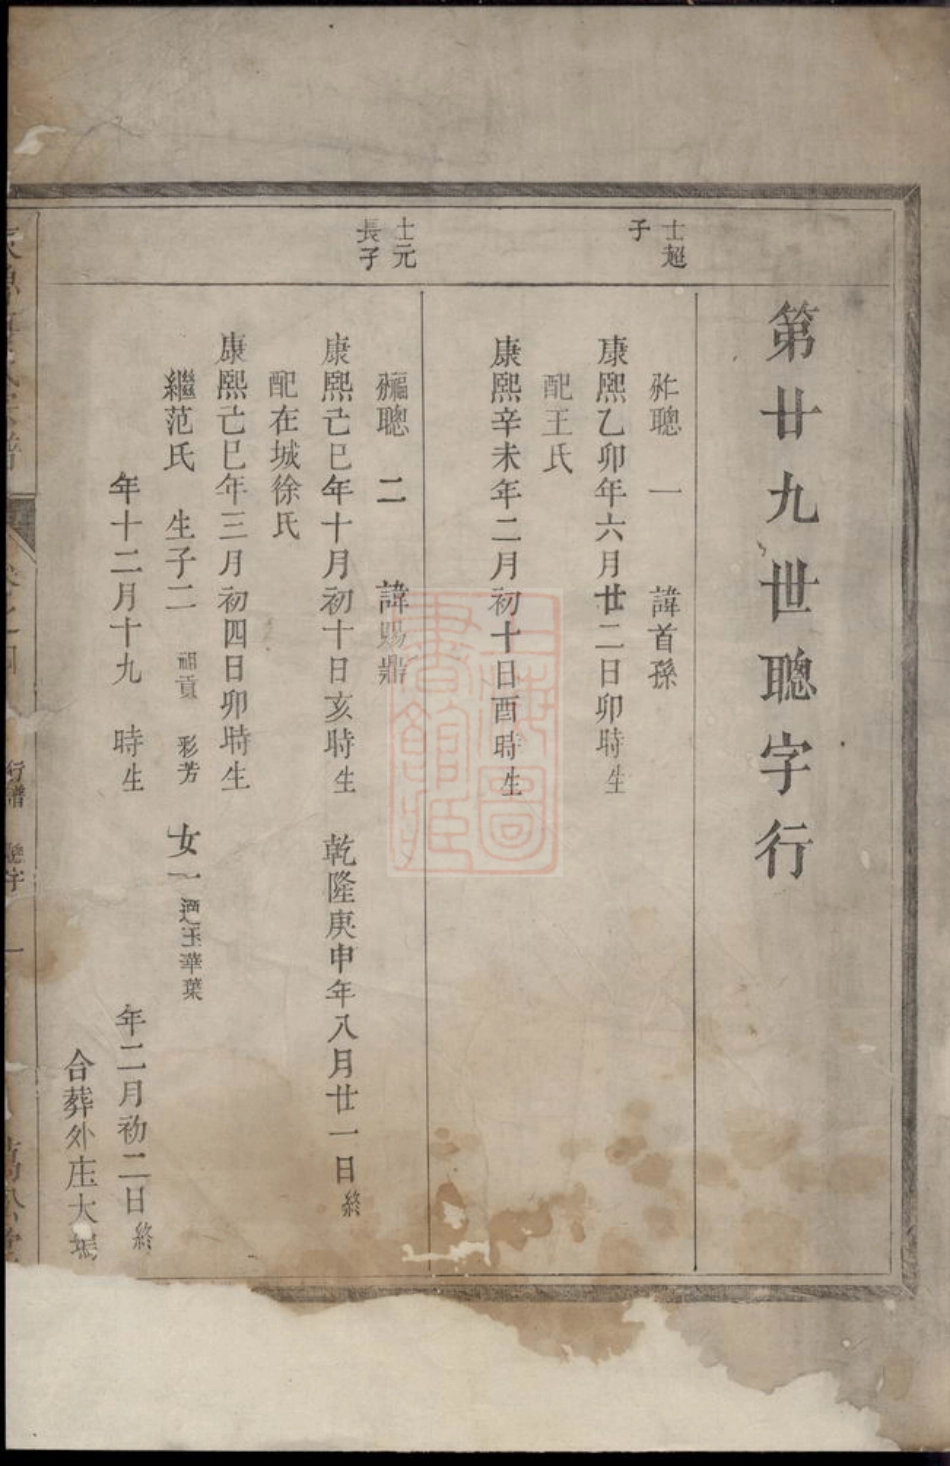 第廿九世聰字行
士超
子
聰一 諱首孫
康熙乙卯年六月廿二日卯時生
配王氏
康熙辛未年二月初十日酉時生
士元
長子
聰二 諱賜鼎
康熙己巳年十月初十日亥時生 乾隆庚申年八月廿一日終
配在城徐氏
康熙己巳年三月初四日卯時生
繼范氏 生子二 祖貢 彩芳 女一適玉華葉
年十二月十九 時生 年二月初二日終
合葬外庄大塢
行譜 聰字 一